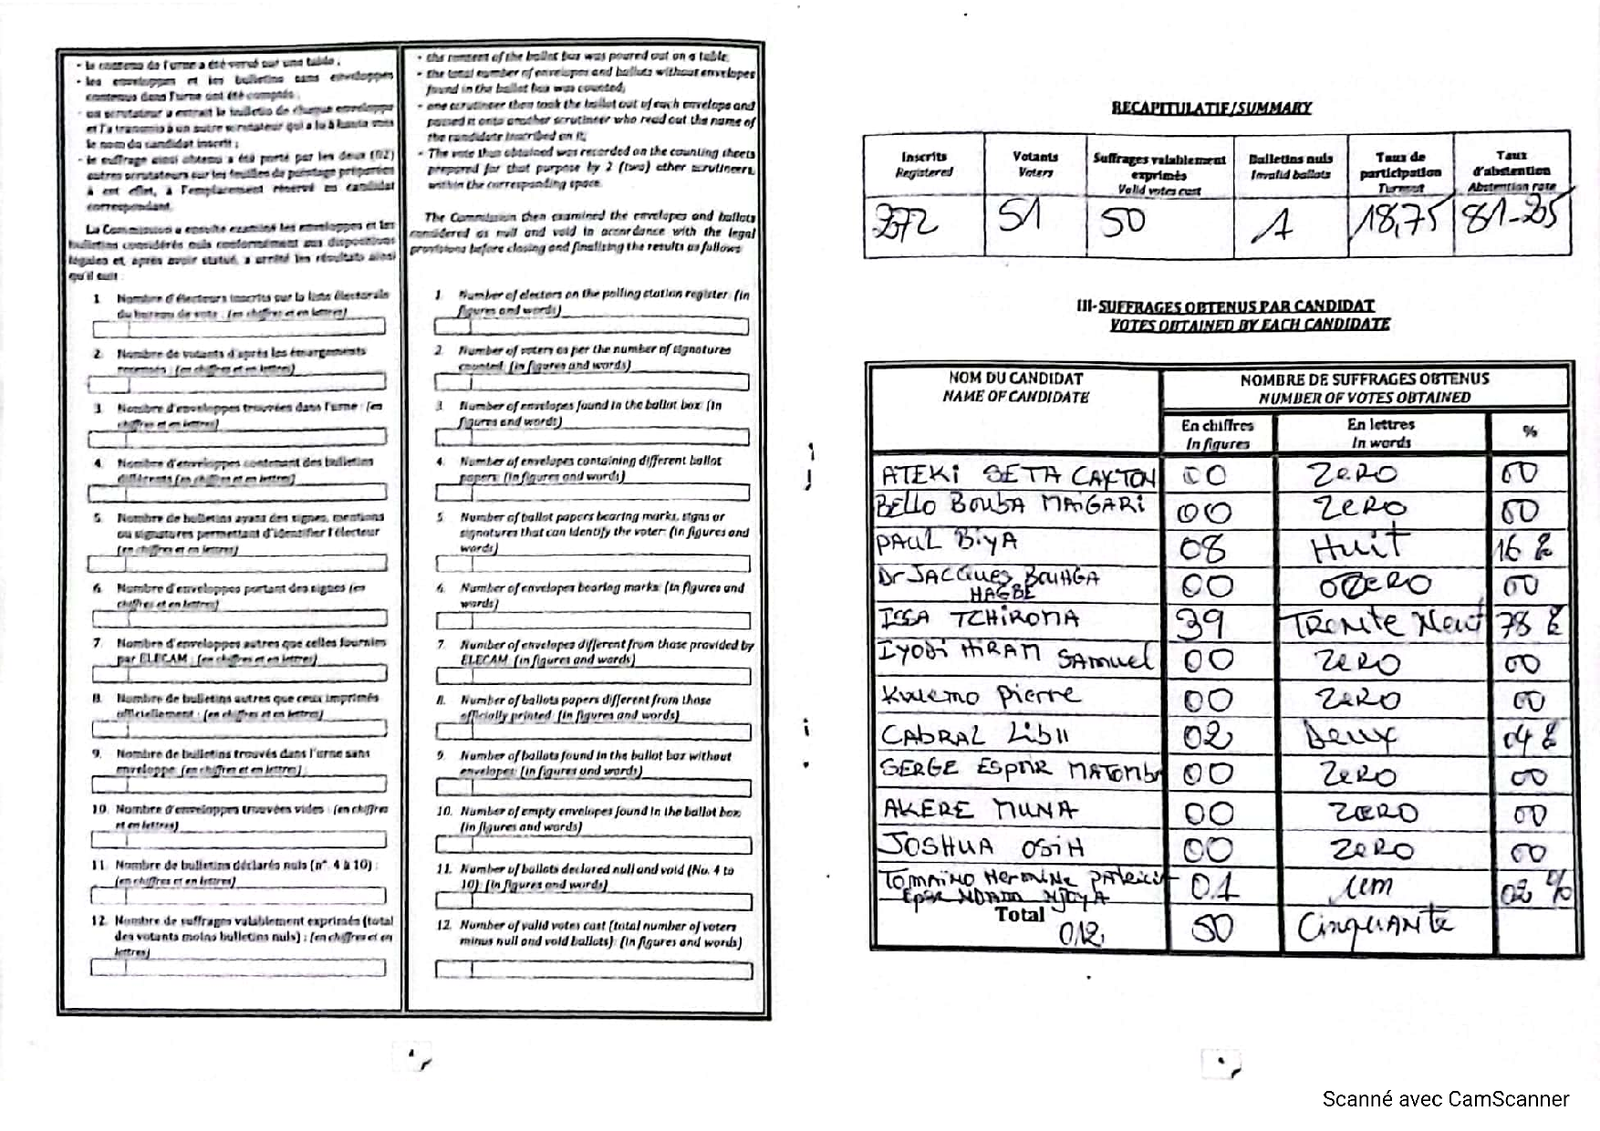 - le contenu de l'urne a été versé sur une table ;
- les enveloppes et les bulletins sans enveloppes
contenus dans l'urne ont été comptés ;
- un scrutateur a extrait le bulletin de chaque enveloppe
et l'a transmis à un autre scrutateur qui a lu à haute voix
le nom du candidat inscrit ;
- le suffrage ainsi obtenu a été porté par les deux (02)
autres scrutateurs sur les feuilles de pointage préparées
à cet effet, à l'emplacement réservé au candidat
correspondant.
La Commission a ensuite examiné les enveloppes et les
bulletins considérés nuls conformément aux dispositions
légales et, après avoir statué, a arrêté les résultats ainsi
qu'il suit :
1. Nombre d'électeurs inscrits sur la liste électorale
du bureau de vote : (en chiffres et en lettres)
2. Nombre de votants d'après les émargements
recensés : (en chiffres et en lettres)
3. Nombre d'enveloppes trouvées dans l'urne : (en
chiffres et en lettres)
4. Nombre d'enveloppes contenant des bulletins
différents (en chiffres et en lettres)
5. Nombre de bulletins ayant des signes, mentions
ou signatures permettant d'identifier l'électeur
(en chiffres et en lettres)
6. Nombre d'enveloppes portant des signes (en
chiffres et en lettres)
7. Nombre d'enveloppes autres que celles fournies
par ELECAM : (en chiffres et en lettres)
8. Nombre de bulletins autres que ceux imprimés
officiellement : (en chiffres et en lettres)
9. Nombre de bulletins trouvés dans l'urne sans
enveloppe (en chiffres et en lettres) :
10. Nombre d'enveloppes trouvées vides : (en chiffres
et en lettres)
11. Nombre de bulletins déclarés nuls (n°. 4 à 10) :
(en chiffres et en lettres)
12. Nombre de suffrages valablement exprimés (total
des votants moins bulletins nuls) : (en chiffres et en
lettres)
- the content of the ballot box was poured out on a table;
- the total number of envelopes and ballots without envelopes
found in the ballot box was counted;
- one scrutineer then took the ballot out of each envelope and
passed it onto another scrutineer who read out the name of
the candidate inscribed on it;
- The vote thus obtained was recorded on the counting sheets
prepared for that purpose by 2 (two) other scrutineers,
within the corresponding space.
The Commission then examined the envelopes and ballots
considered as null and void in accordance with the legal
provisions before closing and finalising the results as follows
1. Number of electors on the polling station register: (in
figures and words)
2. Number of voters as per the number of signatures
counted: (in figures and words)
3. Number of envelopes found in the ballot box: (in
figures and words)
4. Number of envelopes containing different ballot
papers: (in figures and words)
5. Number of ballot papers bearing marks, signs or
signatures that can identify the voter: (in figures and
words)
6. Number of envelopes bearing marks: (in figures and
words)
7. Number of envelopes different from those provided by
ELECAM: (in figures and words)
8. Number of ballots papers different from those
officially printed: (in figures and words)
9. Number of ballots found in the ballot box without
envelopes: (in figures and words)
10. Number of empty envelopes found in the ballot box:
(in figures and words)
11. Number of ballots declared null and void (No. 4 to
10): (in figures and words)
12. Number of valid votes cast (total number of voters
minus null and void ballots): (in figures and words)
RECAPITULATIF/SUMMARY
Inscrits Votants Suffrages valablement exprimés Bulletins nuls Taux de participation Taux d'abstention
Registered Voters Valid votes cast Invalid ballots Turnout Abstention rate
272 51 50 1 18,75 81-25
III- SUFFRAGES OBTENUS PAR CANDIDAT
VOTES OBTAINED BY EACH CANDIDATE
NOM DU CANDIDAT NOMBRE DE SUFFRAGES OBTENUS
NAME OF CANDIDATE NUMBER OF VOTES OBTAINED
En chiffres En lettres %
In figures In words
ATEKI SETA CAXTON 00 ZERO 00
BELLO BOUBA MAIGARI 00 ZERO 00
PAUL BiYA 08 Huit 16 %
Dr JACQUES BOUAGA 00 ZERO 00
HAGBE
ISSA TCHIROMA 39 TRENTE Neuf 78 %
IYODI HIRAM SAMUEL 00 ZERO 00
Kwemo Pierre 00 ZERO 00
CABRAL Libii 02 Deux 04 %
SERGE ESPOIR MATOMBA 00 ZERO 00
AKERE MUNA 00 ZERO 00
JOSHUA OSIH 00 ZERO 00
TOMAINO HERMINE PATRICIA 01 um 02 %
Epse NDAM NJOYA
Total 012 50 Cinquante
Scanné avec CamScanner